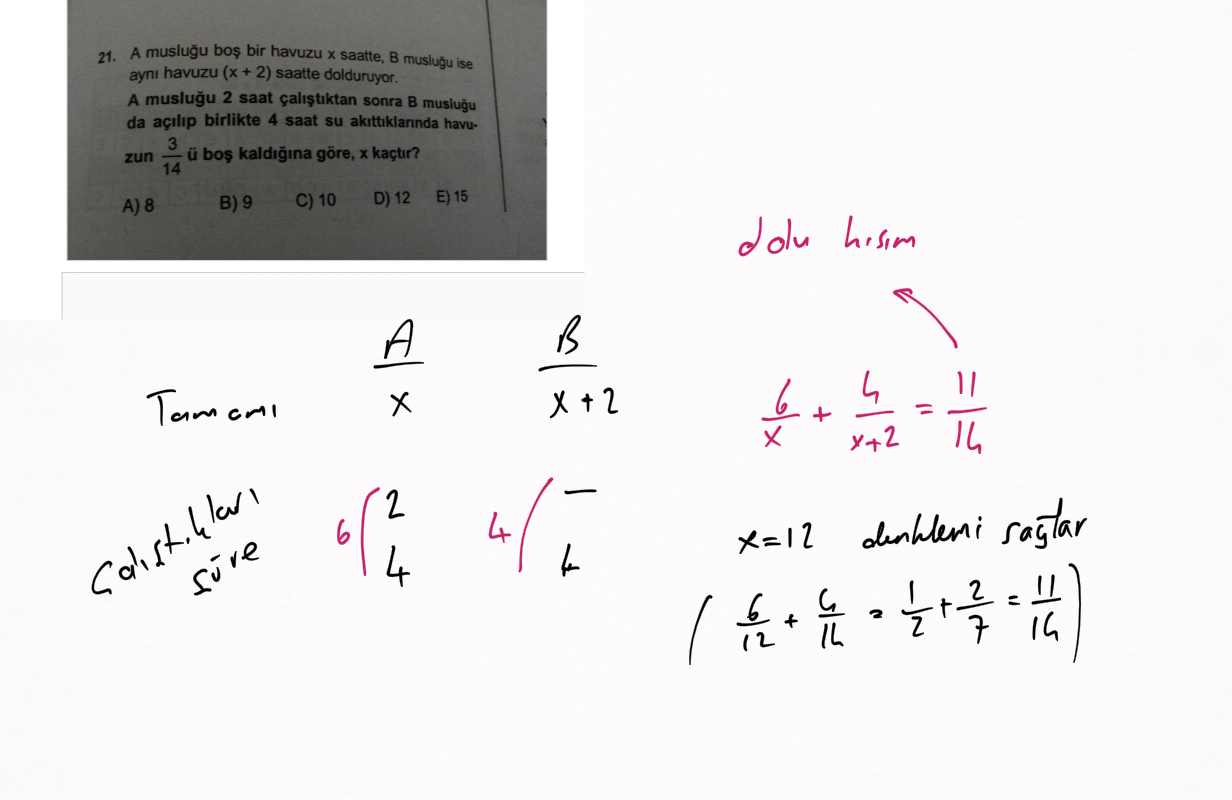 21. A musluğu boş bir havuzu x saatte, B musluğu ise
aynı havuzu (x + 2) saatte dolduruyor.
A musluğu 2 saat çalıştıktan sonra B musluğu
da açılıp birlikte 4 saat su akıttıklarında havu-
zun 3/14 ü boş kaldığına göre, x kaçtır?
A) 8 B) 9 C) 10 D) 12 E) 15
dolu kısım
A B
Tamamı x x + 2
6/x + 4/x+2 = 11/14
Çalıştıkları süre
6 2 4 —
4 4
x=12 denklemi sağlar
( 6/12 + 4/14 = 1/2 + 2/7 = 11/14 )